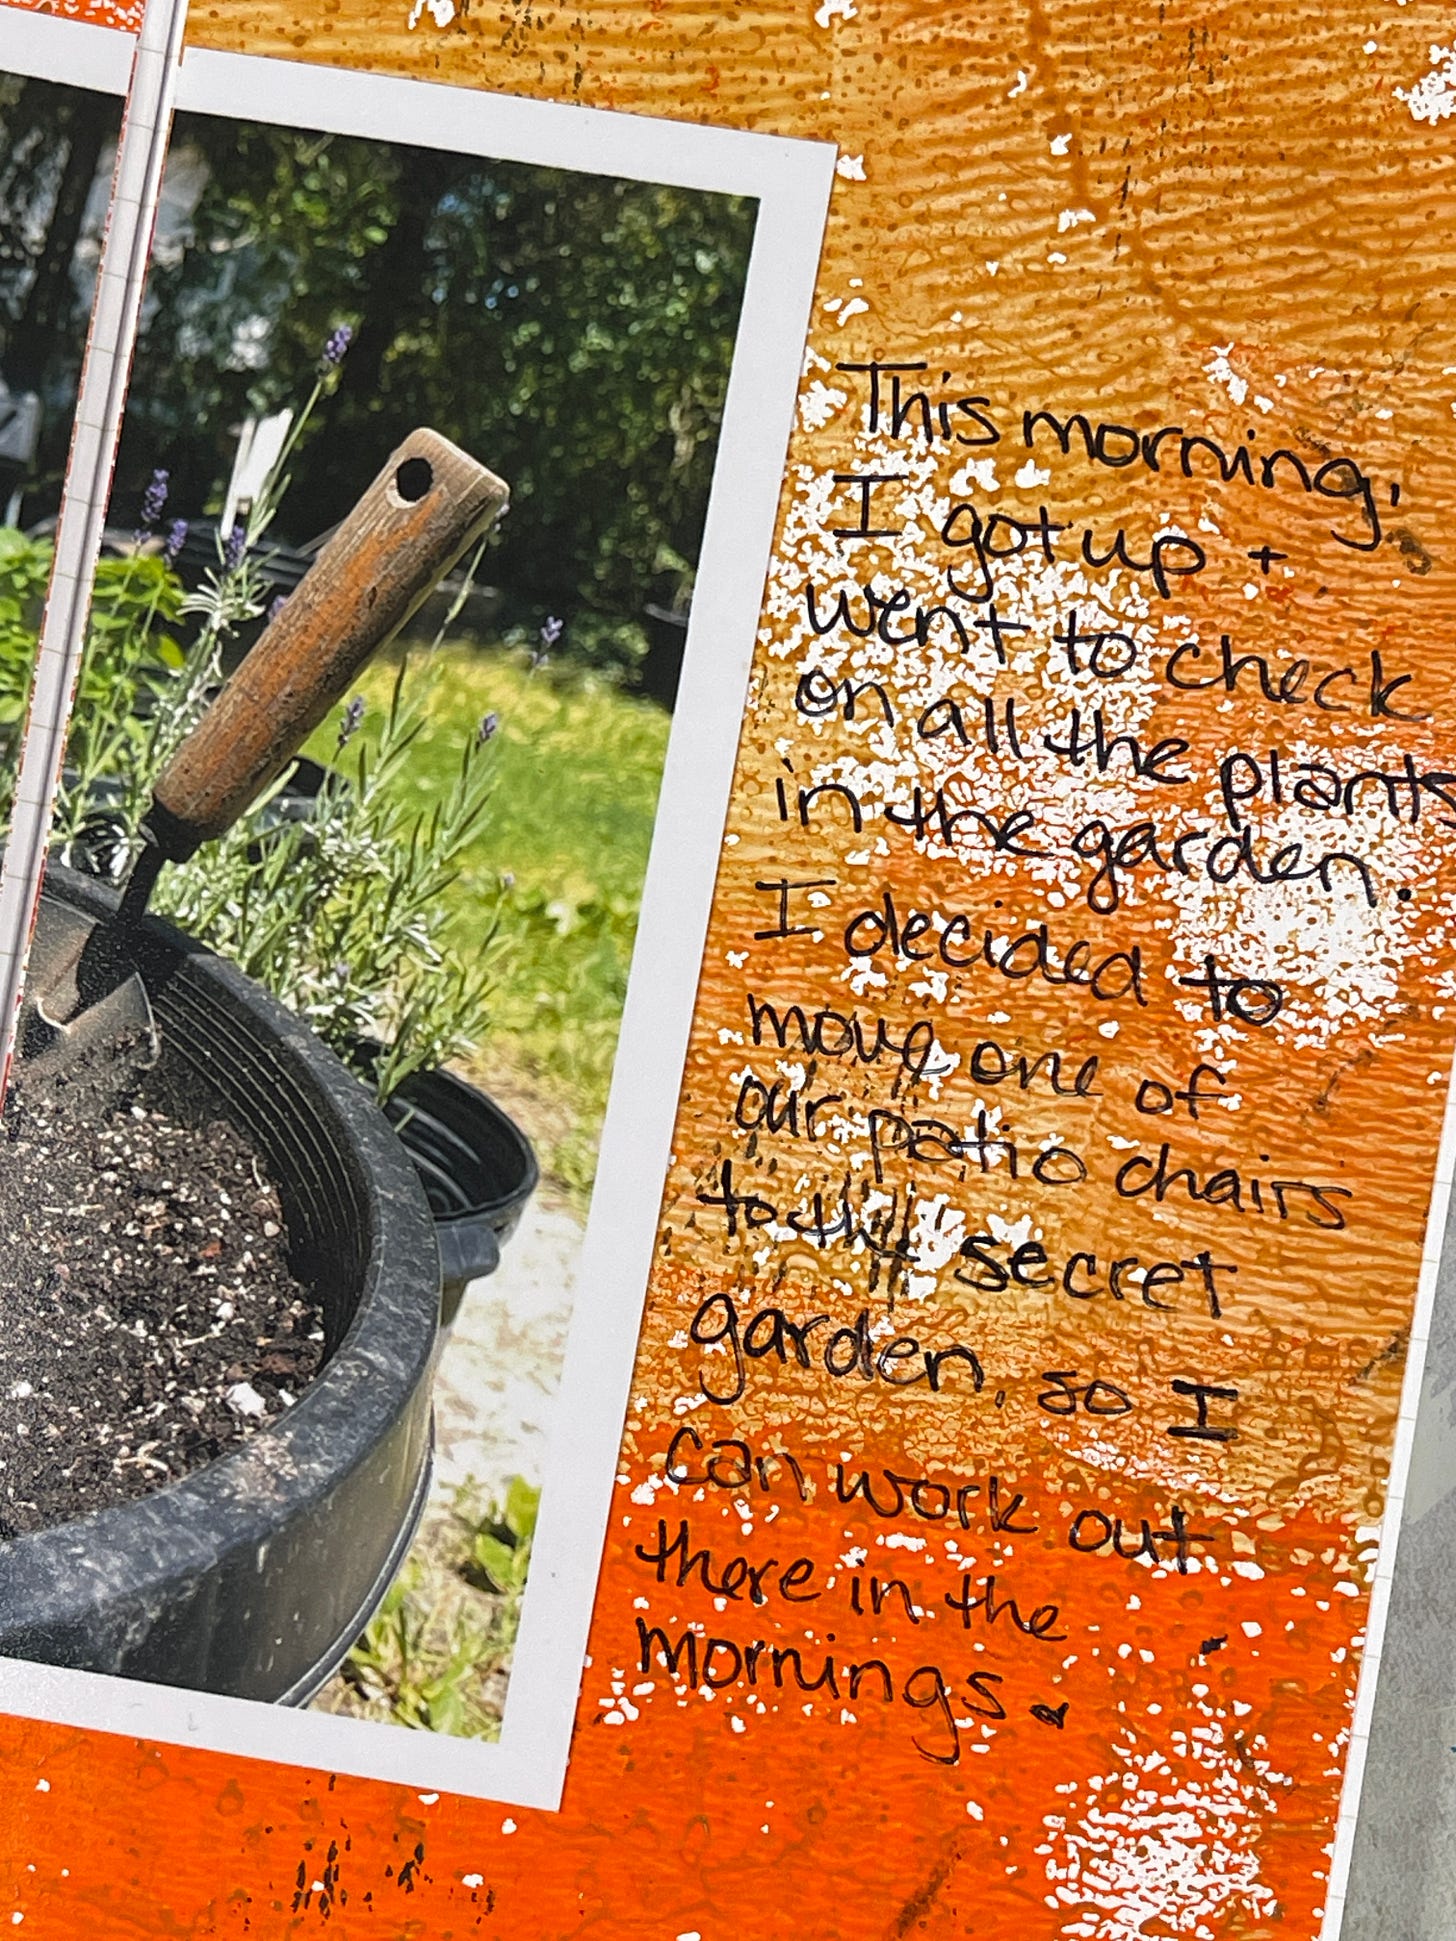 This morning,
I got up +
went to check
on all the plants
in the garden.
I decided to
move one of
our patio chairs
to the secret
garden, so I
can work out
there in the
mornings.